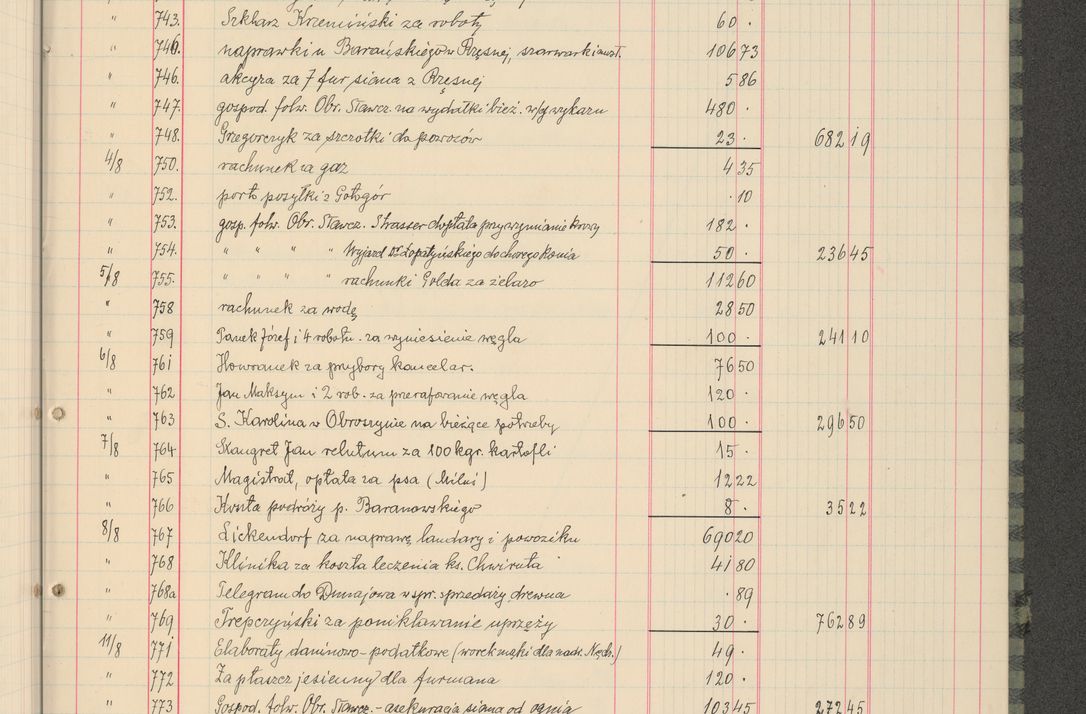 " 743. Szklarz Krzemiński za roboty 60 ·
" 746. naprawki u Barańskiego w Rzęsnej, szarwarki 106 73
" 746. akcyza za 7 fur siana z Rzęsnej 5 86
" 747. gospod. folw. Obr. Stawcz. na wydatki bież. w/g wykazu 480 ·
" 748. Grzegorczyk za szczotki do powozów 23 · 682 19
4/8 750. rachunek za gaz 4 35
" 752. porto posyłki z Gołogór · 10
" 753. gosp. folw. Obr. Stawcz. Strasser dopłata przy wymianie krowy 182 ·
" 754. " " " " Wyjazd Dr. Łopatyńskiego do chorego konia 50 · 236 45
5/8 755. " " " " rachunki Golda za żelazo 112 60
" 758 rachunek za wodę 28 50
" 759 Panek Józef i 4 robotn. za wyniesienie węgla 100 · 241 10
6/8 761 Howranek za przybory kancelar. 76 50
" 762 Jan Maksym i 2 rob. za przerafowanie węgla 120 ·
" 763 S. Karolina w Obroszynie na bieżące potrzeby 100 · 296 50
7/8 764 Kangret Jan relutum za 100 kgr. kartofli 15 ·
" 765 Magistrat, opłata za psa (Milni) 12 22
" 766 Koszta podróży p. Baranowskiego 8 · 35 22
8/8 767 Lickendorf za naprawę landary i powoziku 690 20
" 768 Klinika za koszta leczenia ks. Chwiruta 41 80
" 768a Telegram do Dunajowa w spr. sprzedaży drewna · 89
" 769 Trepczyński za poniklawanie uprzęży 30 · 762 89
11/8 771 Elaboraty daninowo-podatkowe (worek mąki dla nadr. ) 49 ·
" 772 Za płaszcz jesienny dla furmana 120 ·
" 773 Gospod. folw. Obr. Stawcz. - asekuracja siana od ognia 103 45 272 45